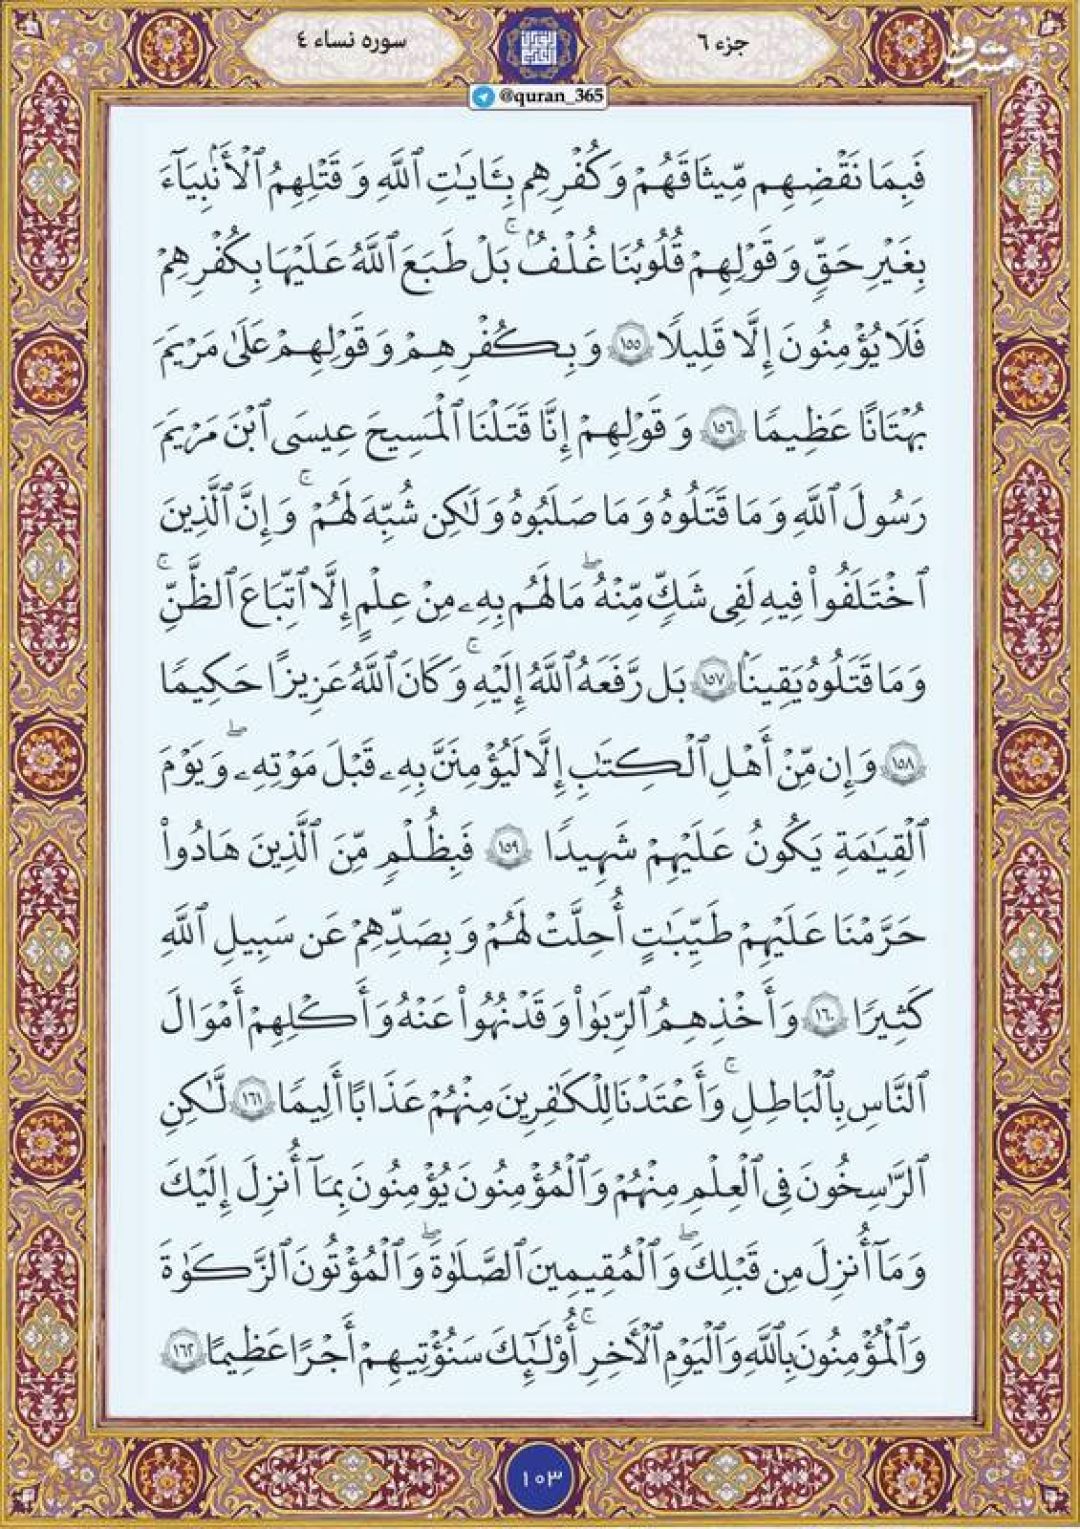 جزء ٦
سوره نساء ٤
@quran_365
فَبِمَا نَقْضِهِم مِّيثَاقَهُمْ وَكُفْرِهِم بِـَٔايَـٰتِ ٱللَّهِ وَ قَتْلِهِمُ ٱلْأَنۢبِيَآءَ
بِغَيْرِ حَقٍّ وَ قَوْلِهِمْ قُلُوبُنَا غُلْفٌۢ ۚ بَلْ طَبَعَ ٱللَّهُ عَلَيْهَا بِكُفْرِهِمْ
فَلَا يُؤْمِنُونَ إِلَّا قَلِيلًا ١٥٥ وَ بِكُفْرِهِمْ وَ قَوْلِهِمْ عَلَىٰ مَرْيَمَ
بُهْتَانًا عَظِيمًا ١٥٦ وَ قَوْلِهِمْ إِنَّا قَتَلْنَا ٱلْمَسِيحَ عِيسَى ٱبْنَ مَرْيَمَ
رَسُولَ ٱللَّهِ وَ مَا قَتَلُوهُ وَ مَا صَلَبُوهُ وَ لَـٰكِن شُبِّهَ لَهُمْ ۚ وَ إِنَّ ٱلَّذِينَ
ٱخْتَلَفُوا۟ فِيهِ لَفِى شَكٍّ مِّنْهُ ۖ مَا لَهُم بِهِۦ مِنْ عِلْمٍ إِلَّا ٱتِّبَاعَ ٱلظَّنِّ ۚ
وَ مَا قَتَلُوهُ يَقِينَۢا ١٥٧ بَل رَّفَعَهُ ٱللَّهُ إِلَيْهِ ۚ وَ كَانَ ٱللَّهُ عَزِيزًا حَكِيمًا
١٥٨ وَ إِن مِّنْ أَهْلِ ٱلْكِتَـٰبِ إِلَّا لَيُؤْمِنَنَّ بِهِۦ قَبْلَ مَوْتِهِۦ ۖ وَ يَوْمَ
ٱلْقِيَـٰمَةِ يَكُونُ عَلَيْهِمْ شَهِيدًا ١٥٩ فَبِظُلْمٍ مِّنَ ٱلَّذِينَ هَادُوا۟
حَرَّمْنَا عَلَيْهِمْ طَيِّبَـٰتٍ أُحِلَّتْ لَهُمْ وَ بِصَدِّهِمْ عَن سَبِيلِ ٱللَّهِ
كَثِيرًا ١٦٠ وَ أَخْذِهِمُ ٱلرِّبَوٰا۟ وَ قَدْ نُهُوا۟ عَنْهُ وَ أَكْلِهِمْ أَمْوَالَ
ٱلنَّاسِ بِٱلْبَاطِلِ ۚ وَ أَعْتَدْنَا لِلْكَـٰفِرِينَ مِنْهُمْ عَذَابًا أَلِيمًا ١٦١ لَّـٰكِنِ
ٱلرَّٰسِخُونَ فِى ٱلْعِلْمِ مِنْهُمْ وَ ٱلْمُؤْمِنُونَ يُؤْمِنُونَ بِمَآ أُنزِلَ إِلَيْكَ
وَ مَآ أُنزِلَ مِن قَبْلِكَ ۖ وَ ٱلْمُقِيمِينَ ٱلصَّلَوٰةَ ۖ وَ ٱلْمُؤْتُونَ ٱلزَّكَوٰةَ
وَ ٱلْمُؤْمِنُونَ بِٱللَّهِ وَ ٱلْيَوْمِ ٱلْأَخِرِ ۚ أُو۟لَـٰٓئِكَ سَنُؤْتِيهِمْ أَجْرًا عَظِيمًا ١٦٢
١٠٣